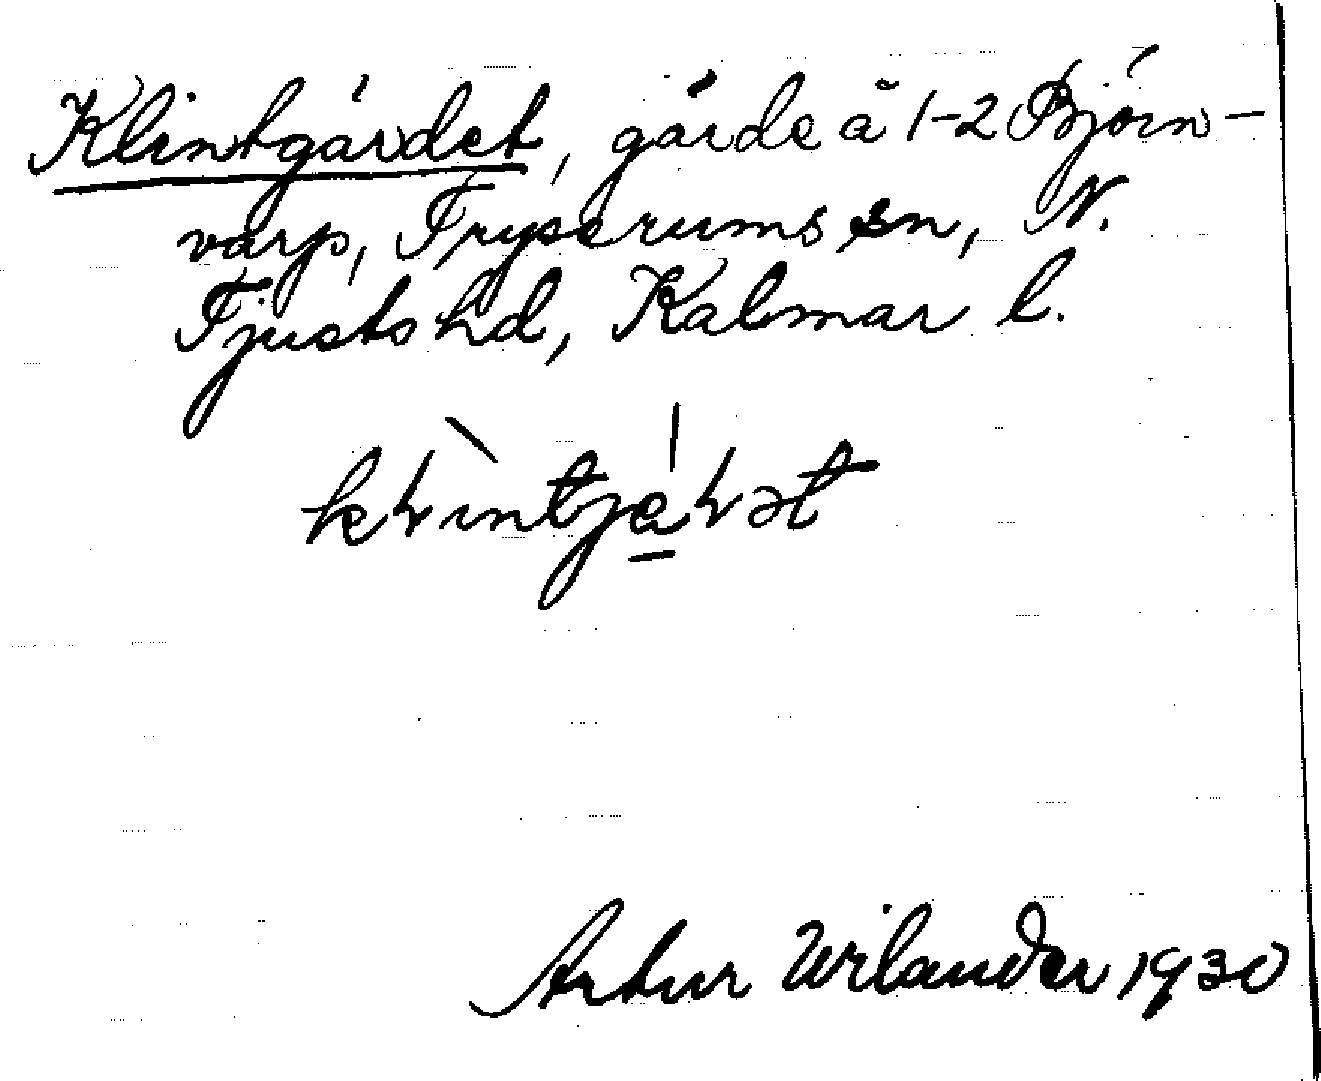 Klintgärdet, gärde å 1-2 Björn-
varp, Tryserums sn, N.
Tjusts hd, Kalmar l.
Artur Wilander 1930